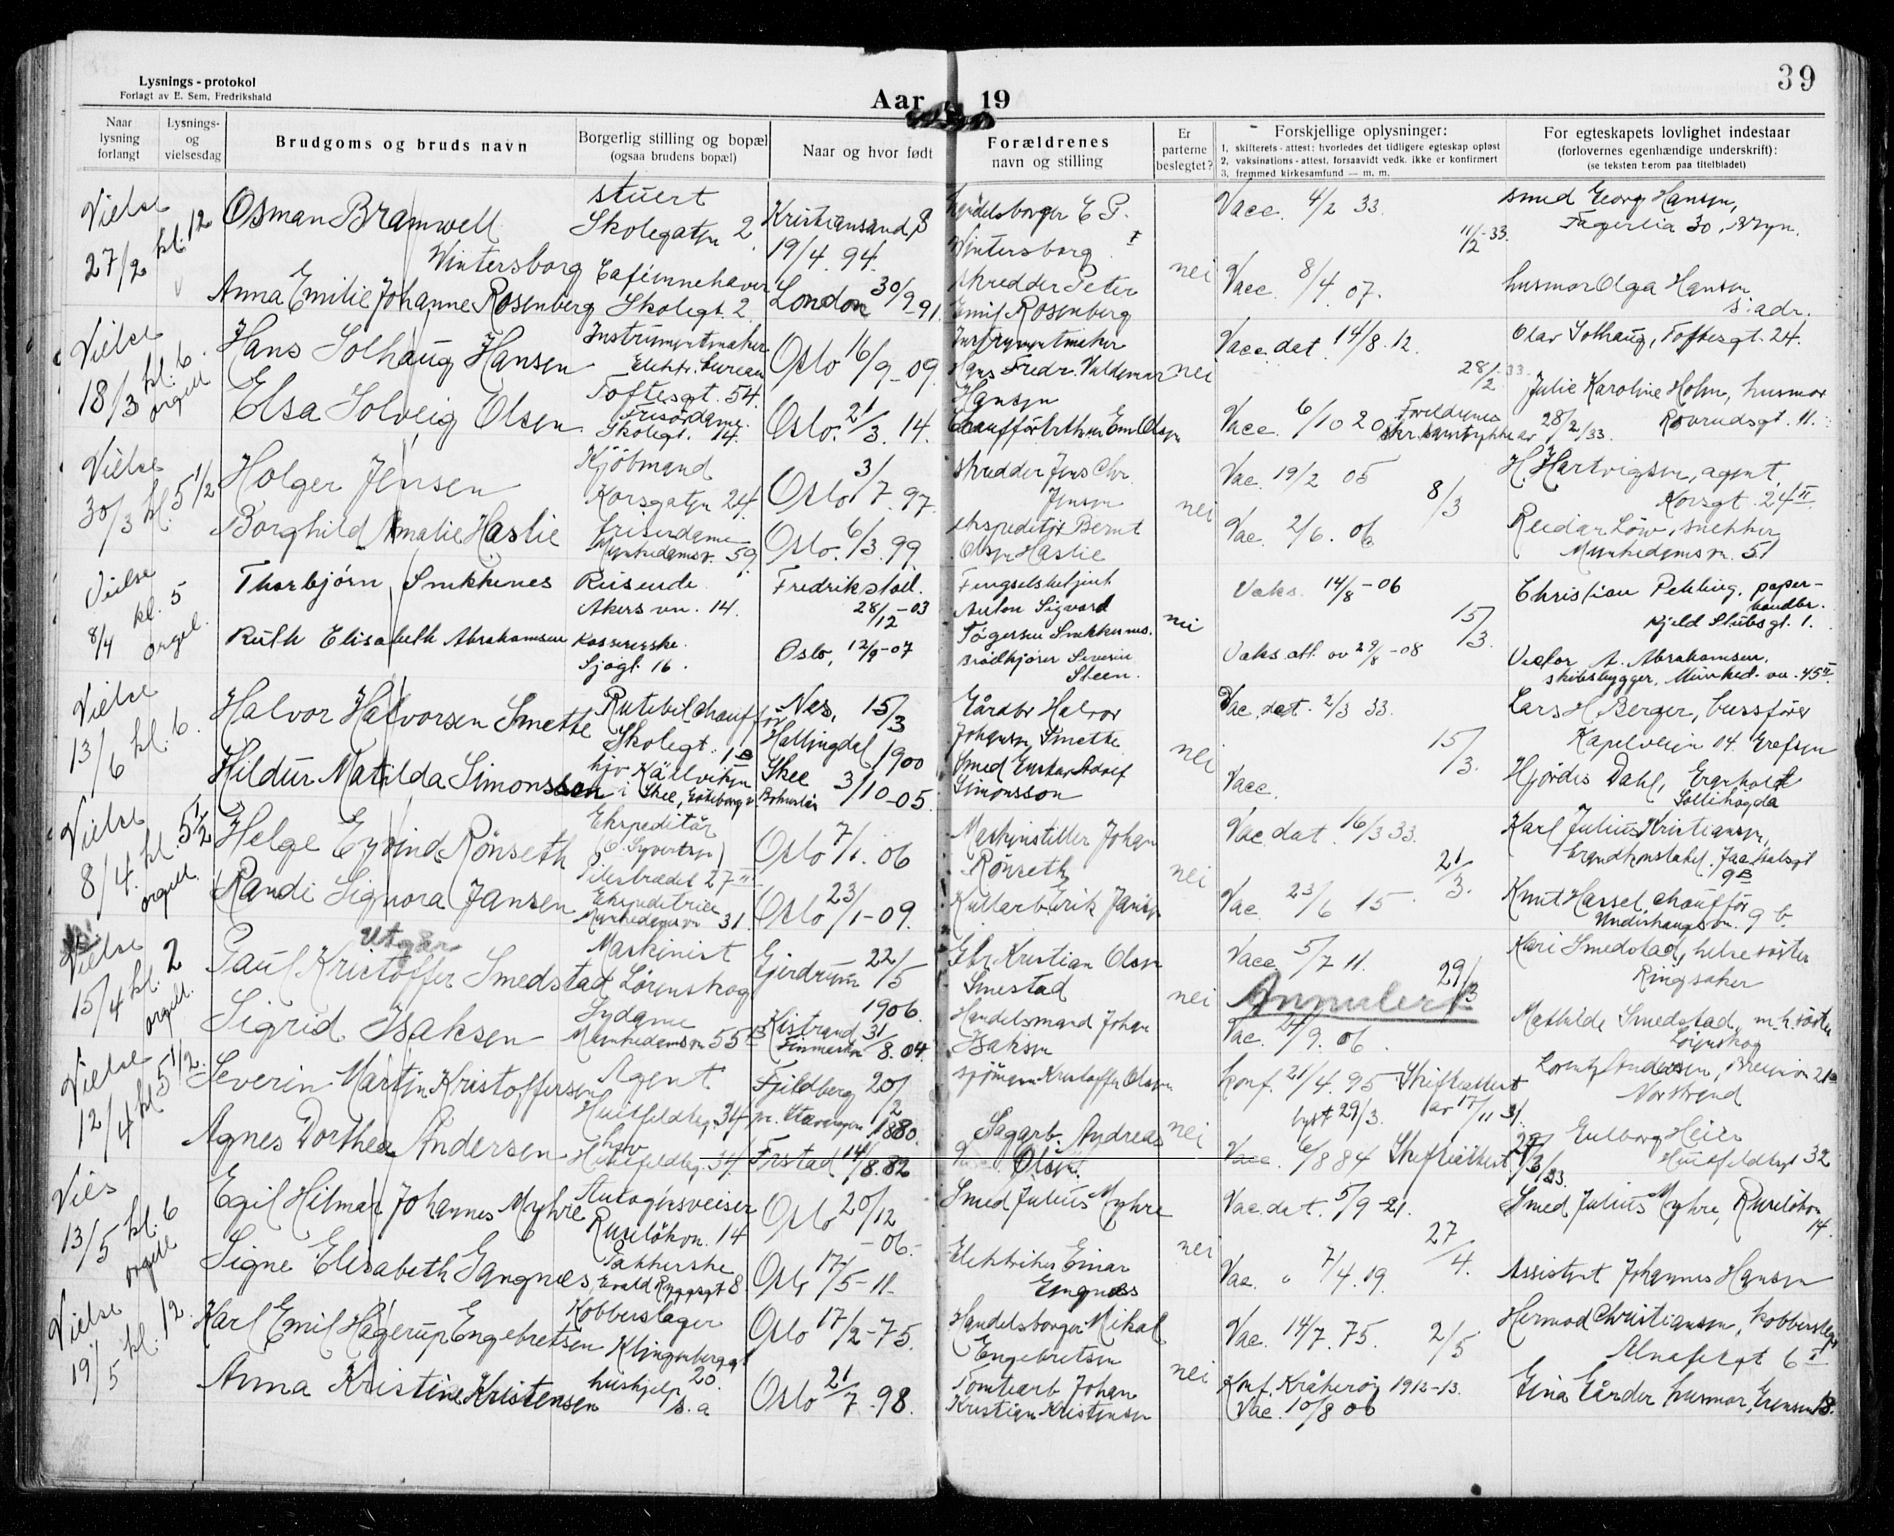 39
Lysnings-protokol
Forlagt av E. Sem, Fredrikshald
Aar 19
Naar lysning forlangt
Lysnings- og vielsesdag
Brudgoms og bruds navn
Borgerlig stilling og bopæl
(ogsaa brudens bopæl)
Naar og hvor født
Forældrenes
navn og stilling
Er parterne beslegtet?
Forskjellige oplysninger:
1, skifterets-attest: hvorledes det tidligere egteskap opløst
2, vaksinations-attest, forsaavidt vedk. ikke er konfirmert
3, fremmed kirkesamfund — m. m.
For egteskapets lovlighet indestaar
(forlovernes egenhændige underskrift):
(se teksten herom paa titelbladet)
Vielse
27/2 kl. 12
Osman Bramwell
Wintersborg
stuert
Skolegaten 2
Kristiansand, S
19/4. 94.
E P.
Wintersborg
Vacc. 4/2 33.
11/2-33.
smed Georg Hansen,
Fagerlia 30,
Anna Emilie Johanne Rosenberg
Caféinnehaver
Skolegt. 2.
London 30/9 91.
skredder Peter
Emil Rosenberg
nei
Vacc. 8/4. 07.
husmor Olga Hansen
s. adr.
Vielse
18/3 kl. 6.
orgell
Hans Solhaug Hansen
Instrumentmaker
Elektr. bureau
Toftesgt. 54.
Oslo 16/9-09.
Instrumentmaker
Hans Fredr. Valdemar
Hansen
nei
Vacc. dat. 14/8. 12.
28/2-33.
Olav Solhaug, Toftesgt. 24.
Elsa Solveig Olsen
Frisørdame
Skolegt. 14.
Oslo. 21/3. 14.
Chauffør Arthur Em. Olsen
Vacc. 6/10 20
Foreldrenes
skr. samtykke av 28/2/33.
Julie Karoline Holm, husmor
Rovrudsgt. 11.
Vielse
30/3 kl. 5 1/2
Holger Jensen
Kjøbmand
Korsgaten 24.
Oslo 3/7. 97.
skredder Jens Chr.
Jensen
nei
Vac. 19/2 05
8/3
H. Hartvigsen, agent,
Korsgt. 24 II.
Borghild Amalie Haslie
Friserdame
Munkedamsv. 59.
Oslo. 6/3. 99.
ekspeditør Bernt
Olsen Haslie
Vac. 2/6. 06
Reidar Löw, snekker
Munkedamsvn. 51
Vielse
8/4 kl. 5
orgel.
Thorbjørn Snekkenes
Reisende.
Akersvn. 14.
Fredrikstad.
28/12-03
Fengselsbetjent
Anton Sigvard
Tøgersen Snekkenes.
nei
Vaks. 14/8-06
15/3.
Christian Pehling, papir-
handler.
Kjeld Stubsgt. 1.
Ruth Elisabeth Abrahamsen
Kassererske.
Sjøgt. 16.
Oslo, 12/9-07
Brødkjører Severin
Steen.
Vaks. att. av 29/8-08
Victor A. Abrahamsen,
skibsbygger, Munked.vn. 45 II.
Vielse
13/6 kl. 6.
Halvor Halvorsen Smette
Rutebilchauffør
Skolegt. 1 B
Nes, 15/3
Hallingdal 1900
Gårdbr. Halvor
Johansen Smette
nei
Vac. dat. 2/3 33.
15/3.
Lars H. Berger, bussfører
Kapelveien 04. Grefsen
Hildur Matilda Simonsson
hjv. Källviken
i Skee, Göteborg
Skee 3/10-05.
Bohuslän
Smed Gustav Adolf
Simonsson
Vacc.
Hjørdis Dahl,
Sollihøgda
Vielse
8/4. kl. 5 1/2
orgell.
Helge Eyvind Rönseth
Ekspeditör
Pilestrædet 27 II
Oslo 7/1. 06
Maskinstiller Johan
Rönseth
nei
Vac. dat. 16/3 33.
21/3.
Karl Julius Kristiansen,
9 B
Randi Signora Jansen
Ekspeditrice
Munkedamsvn 31.
Oslo 23/1-09.
Kullarb. Erik Jansen
Vac. 23/6 15
Knut Hassel chauffør
Underhaugsvn. 9 b.
Vielse
15/4 kl. 2
orgell.
Utgår
Paul Kristoffer Smedstad
Maskinist
Lørenskog
Gjerdrum 22/5
1906.
Gbr. Kristian Olsen
Smestad
nei
Vacc. 5/7 11.
29/3
Annulert
Kari Smedstad, helsesøster
Ringsaker
Sigrid Isaksen
Sydame
Munkedamsvn 55 B
Kistrand 31/8. 04.
Finmarken
Handelsmand Johan
Isaksen
Vac. 24/9. 06.
Mathilde Smedstad, m.h. søster
Lørenskog
Vielse
12/4 kl 5 1/2.
Severin Martin Kristoffersen
Agent
Huitfeldtsg. 34
Fjeldberg 20/2
pr. Stavanger 1880.
Kristoffer Olsen
nei
Konf. 21/4. 95 Skifteattest
lyst 29/3. av 17/11 31.
Andersen,
Nordstrand
Agnes Dorthea Andersen
hjv
Huitfeldtsg. 34.
Frstad 14/8. 82
Sagarb. Andreas
Olsen.
Vacc. 6/8 84 Skifteattest
Heier
Huitfeldtsgt 32
Viels
13/5 kl. 6
orgell
Egil Hilmar Johannes Myhre
Autogensveiser
Ruseløkvn. 14
Oslo 20/12
-06.-
Smed Julius Myhre
nei
Vac. dat. 5/9-21.
27/4.
Smed Julius Myhre, Ruseløkvn
14.
Signe Elisabeth Gangnæs
Pakkerske
Evald Ryggsgt 8.
Oslo 17/5-11.
Elektriker Einar
Engnæs
Vac. " 7/4. 19.
Assistent Johannes Hansen
Vielse
19/5 kl. 12.
Karl Emil Hagerup Engebretsen
Kobberslager
Klingenberggt
20.
Oslo 17/2-75.
Handelsborger Mikal
Engebretsen
nei
Vac. 14/7. 75.
2/5
Hermod Christiansen, kobberslager
Alnafetgt 6 I
Anna Kristine Kristensen
hushjelp
s. a
Oslo 21/7-98.
Tomtearb. Johan
Kristian Kristensen
Konf. Kråkerøy 1912-13.
Vac. 10/8 06
Gina Gårder husmor, Grensen 18.